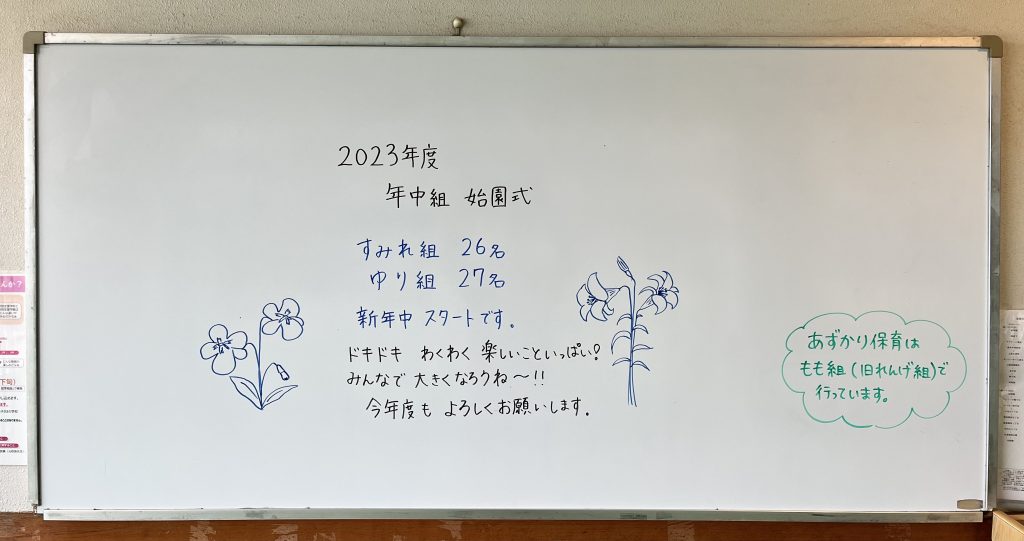 2023年度
年中組 始園式
すみれ組 26名
ゆり組 27名
新年中 スタートです。
ドキドキ わくわく 楽しいこといっぱい?
みんなで 大きくなろうね〜!!
今年度も よろしくお願いします.
あずかり保育は
もも組(旧れんげ組)で
行っています。
んか?
下旬)